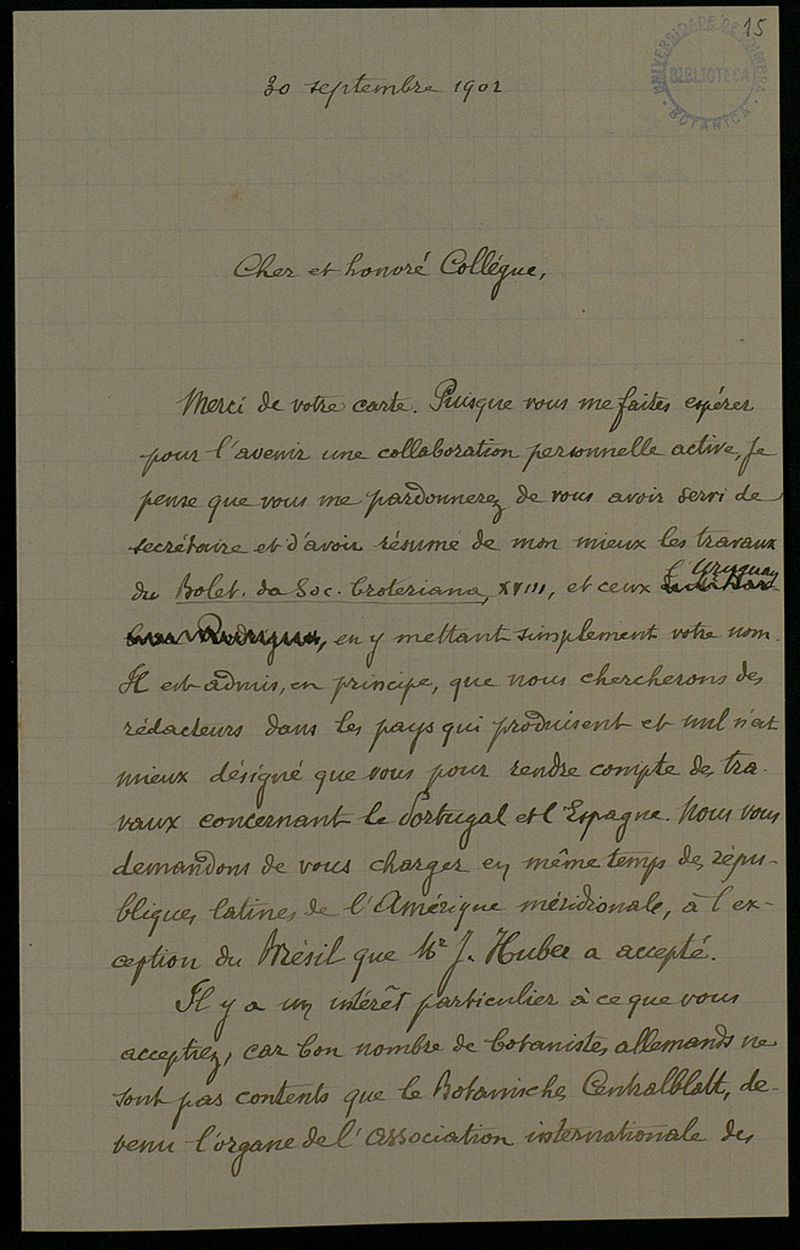 15
UNIVERSIDADE DE COIMBRA
BIBLIOTECA
BOTANICA
30 septembre 1902
Cher et honoré Collégue,
Merci de votre carte. Puisque vous me faites espérer
pour l'avenir une collaboration personnelle active, je
pense que vous me pardonnerez de vous avoir servi de
secrétaire et d'avoir résumé de mon mieux les travaux
du Bolet. da Soc. Broteriana, XVIII, et ceux
l'Uruguay
en y mettant simplement votre nom.
Il est admis, en principe, que nous chercherons des
rédacteurs dans les pays qui produisent et nul n'est
mieux désigné que vous pour rendre compte des tra-
vaux concernant le Portugal et l'Espagne. Nous vous
demandons de vous charger en même temps des répu-
bliques latines de l'Amérique méridionale, à l'ex-
ception du Brésil que Mr J. Huber a accepté.
Il y a un intérêt particulier à ce que vous
acceptiez, car bon nombre de botanistes allemands ne
sont pas contents que le Botanisches Centralblatt, de-
venu l'organe de l'Association internationale des